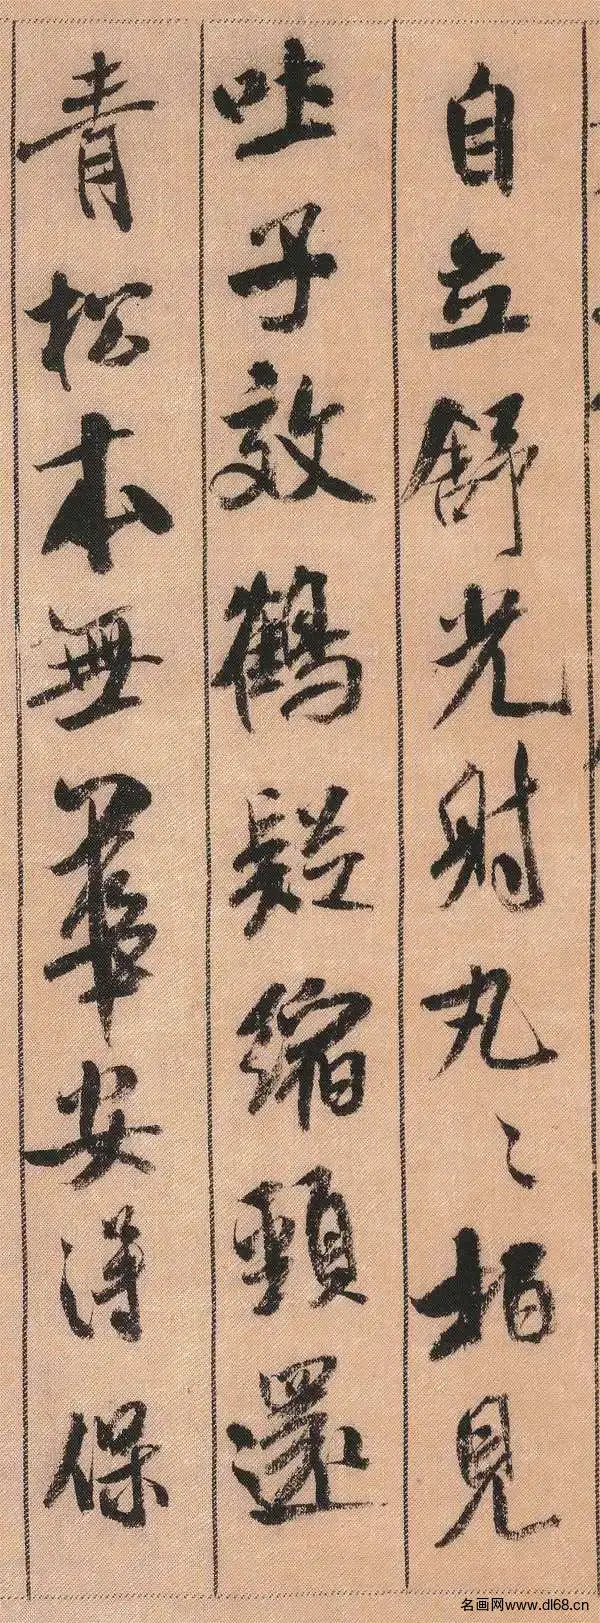 自立舒光射丸〻柏見
吐子效鶴疑縮頸還
青松本無華安得保
名画网www.dl68.cn